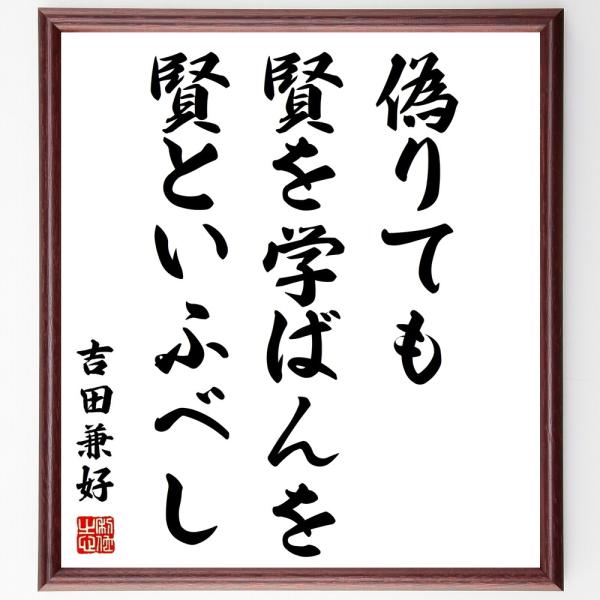 偽りても
賢を学ばんを
賢といふべし
吉田兼好